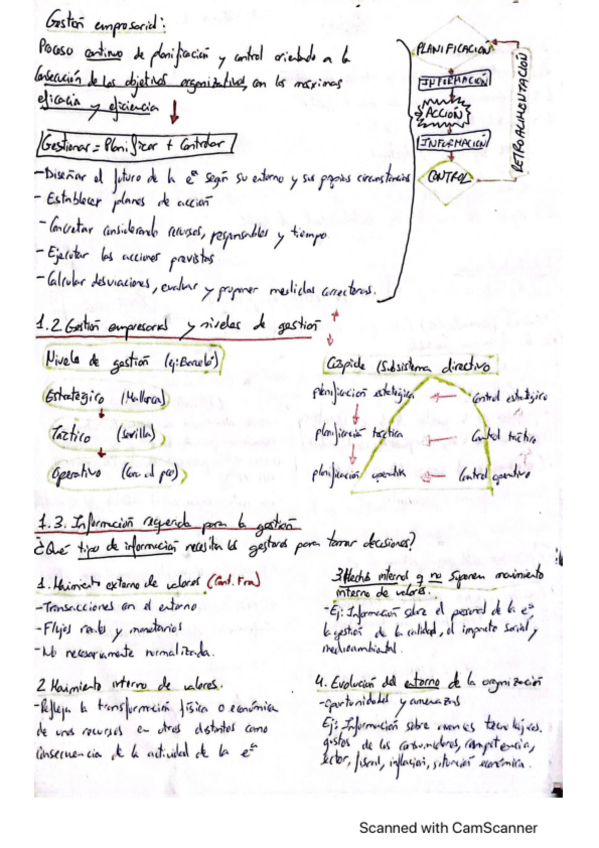 Gestión empresarial:
Proceso continuo de planificación y control orientado a la
consecución de los objetivos organizativos, con las máximas
eficacia y eficiencia
Gestionar = Planificar + Controlar
- Diseñar el futuro de la eª según su entorno y sus propias circunstancias
- Establecer planes de acción
- Concretar considerando recursos, responsables y tiempo
- Ejecutar las acciones previstas
- Calcular desviaciones, evaluar y proponer medidas correctoras.
PLANIFICACIÓN
INFORMACIÓN
ACCIÓN
INFORMACIÓN
CONTROL
RETROALIMENTACIÓN
1.2 Gestión empresarial y niveles de gestión
Niveles de gestión (ej: Barceló)
Estratégico (Mallorca)
Táctico (Sevilla)
Operativo
Cúspide (Subsistema directivo
planificación estratégica
control estratégico
planificación táctica
Control táctico
planificación operativa
Control operativo
1.3. Información requerida para la gestión
¿Qué tipo de información necesitan los gestores para tomar decisiones?
1. Movimiento externo de valores (Cont. Fra)
- Transacciones con el entorno
- Flujos reales y monetarios
- No necesariamente normalizada.
2 Movimiento interno de valores.
- Refleja la transformación física o económica
de unos recursos en otros distintos como
consecuencia de la actividad de la eª
3 Hechos internos q no suponen movimiento
interno de valores.
- Ej: Información sobre el personal de la eª
la gestión de la calidad, el impacto social y
medioambiental.
4. Evolución del entorno de la organización
- oportunidades y amenazas
Ej: Información sobre avances tecnológicos,
gustos de los consumidores, competencia,
sector, fiscal, inflación, situación económica.
Scanned with CamScanner